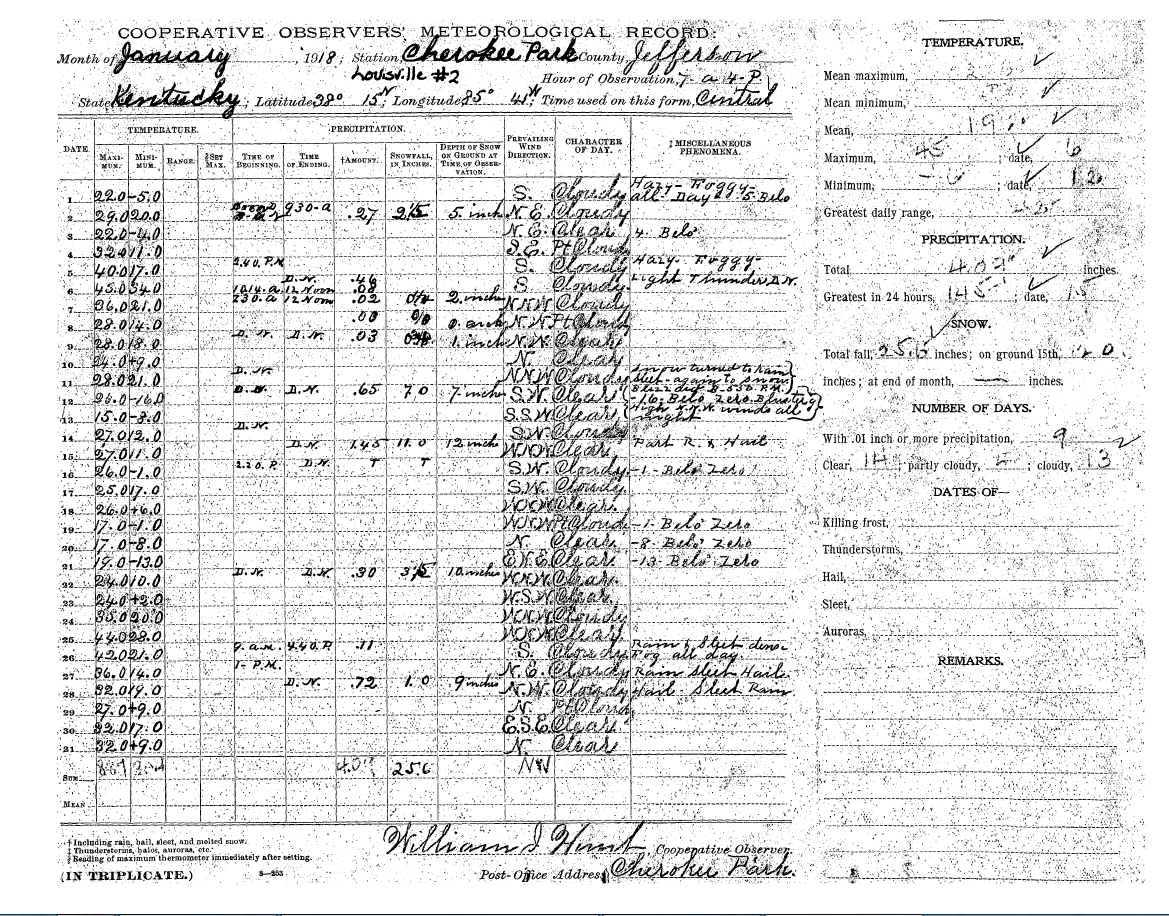 COOPERATIVE OBSERVERS' METEOROLOGICAL RECORD.
Month of January, 1918; Station, Cherokee Park County, Jefferson
Louisville #2 Hour of Observation, 7-a 4-P.
State, Kentucky; Latitude, 38° 15'N; Longitude, 85° 41'W Time used on this form, Central
DATE. TEMPERATURE. PRECIPITATION. PREVAILING WIND DIRECTION. CHARACTER OF DAY. ‡MISCELLANEOUS PHENOMENA.
MAXIMUM. MINIMUM. RANGE. §SET MAX. TIME OF BEGINNING. TIME OF ENDING. †AMOUNT. SNOWFALL, IN INCHES. DEPTH OF SNOW ON GROUND AT TIME OF OBSERVATION.
1 22.0 -5.0 S. Cloudy Hazy- Foggy- all Day -5- Belo
2 29.0 20.0 930-a .27 5 inch N.E. Cloudy
3 22.0 -4.0 N.E. Clear 4 Belo
4 32.0 11.0 Pt Cloudy
5 40.0 17.0 2.40.P.M. S. Cloudy Hazy- Foggy-
6 45.0 34.0 D.N. .46 S. Cloudy Light Thunder D.N.
10.14.a 12 Noon .08
7 36.0 21.0 2.30.a 12 Noon .02 2 inch NNW Cloudy
8 28.0 14.0 .00 N.W. Pt Cloudy
9 18.0 D.N. D.N. .03 1 inch N.W. Cloudy
10 24.0 +9.0 N. Clear
11 28.0 21.0 D.N. NNW Cloudy snow turned to rain sleet-again to snow
12 -16.0 D.N. D.N. .65 7.0 7-inch S.W. Clear -16- Belo Zero. Blustery
13 15.0 -8.0 S.S.W. Clear High N.N.W. winds all night
14 27.0 12.0 D.N. S.W. Cloudy
15 27.0 11.0 D.N. 1.45 11.0 12 inch WNW Clear Part R. & Hail
16 26.0 -1.0 2.20.P. D.N. T T S.W. Cloudy -1- Belo Zero
17 25.0 17.0 S.W. Cloudy
18 26.0 +6.0 WNW Clear
19 17.0 -1.0 WNW Pt Cloud -1- Belo Zero
20 17.0 -8.0 N. Clear -8- Belo Zero
21 19.0 -13.0 E.N.E. Clear -13- Belo Zero
22 10.0 D.N. D.N. .30 10 inches W.N.W. Clear
23 24.0 +2.0 W.S.W. Clear
24 35.0 20.0 W.N.W. Cloudy
25 44.0 28.0 WNW Clear
26 42.0 21.0 7.a.m. 4.40.P. .11 S. Cloudy Rain & Sleet dense Fog all day
27 36.0 14.0 1-P.M. N.E. Cloudy Rain Sleet Hail
28 32.0 19.0 D.N. .72 1.0 9 inches N.W. Cloudy Hail- Sleet Rain
29 27.0 +9.0 N. Pt Cloud
30 32.0 17.0 E.S.E. Clear
31 32.0 +9.0 N. Clear
SUM 25.6 NW
MEAN
† Including rain, hail, sleet, and melted snow.
‡ Thunderstorms, halos, auroras, etc.
§ Reading of maximum thermometer immediately after setting.
(IN TRIPLICATE.) 8—253
William J Hunt, Cooperative Observer.
Post-Office Address, Cherokee Park.
TEMPERATURE.
Mean maximum,
Mean minimum,
Mean,
Maximum, 45; date, 6
Minimum, ; date, 12
Greatest daily range,
PRECIPITATION.
Total, inches.
Greatest in 24 hours, 1.45; date, 15
SNOW.
Total fall, 25.6 inches; on ground 15th,
inches; at end of month, — inches.
NUMBER OF DAYS.
With .01 inch or more precipitation, 9
Clear, 14; partly cloudy, ; cloudy, 13
DATES OF—
Killing frost,
Thunderstorms,
Hail,
Sleet,
Auroras,
REMARKS.